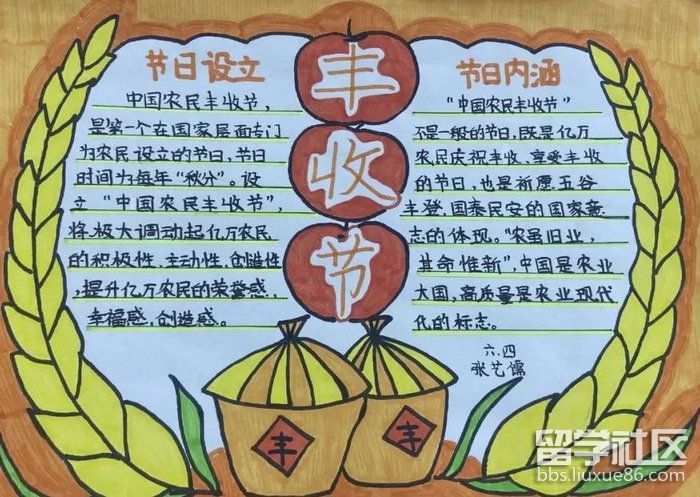 丰
收
节
节日设立
中国农民丰收节，
是第一个在国家层面专门
为农民设立的节日，节日
时间为每年“秋分”。设
立“中国农民丰收节”，
将极大调动起亿万农民
的积极性、主动性、创造性
，提升亿万农民的荣誉感、
幸福感、创造感。
节日内涵
“中国农民丰收节”
不是一般的节日，既是亿万
农民庆祝丰收、享受丰收
的节日，也是祈愿五谷
丰登、国泰民安的国家意
志的体现。“农虽旧业，
其命惟新”，中国是农业
大国，高质量是农业现代
化的标志。
六.四
张艺儒
丰
丰
留学社区
bbs.liuxue86.com